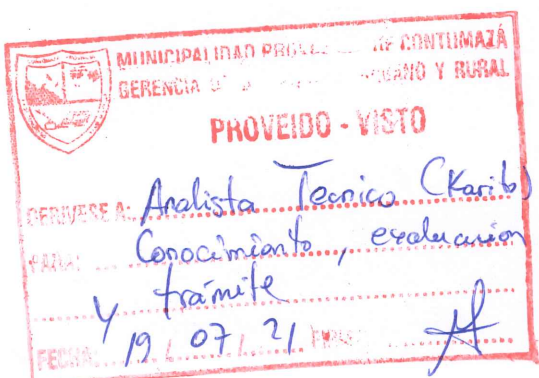 MUNICIPALIDAD DE CONTUMAZÁ
GERENCIA Y RURAL
PROVEIDO - VISTO
DERIVESE A: Analista Tecnico (Karito)
PARA: Conocimianto, evaluación
y trámite
FECHA 19 / 07 / 21 FIRMA